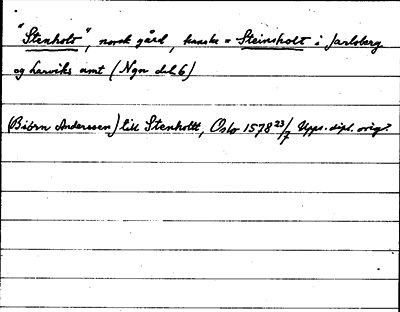 "Stenholt", norsk gård, kanske = Steinsholt i Jarlsberg
og Larviks amt (Ngn del 6)
(Biörn Anderssen) till Stenholtt, Oslo 1578 23/7 Upps. dipl. orig.